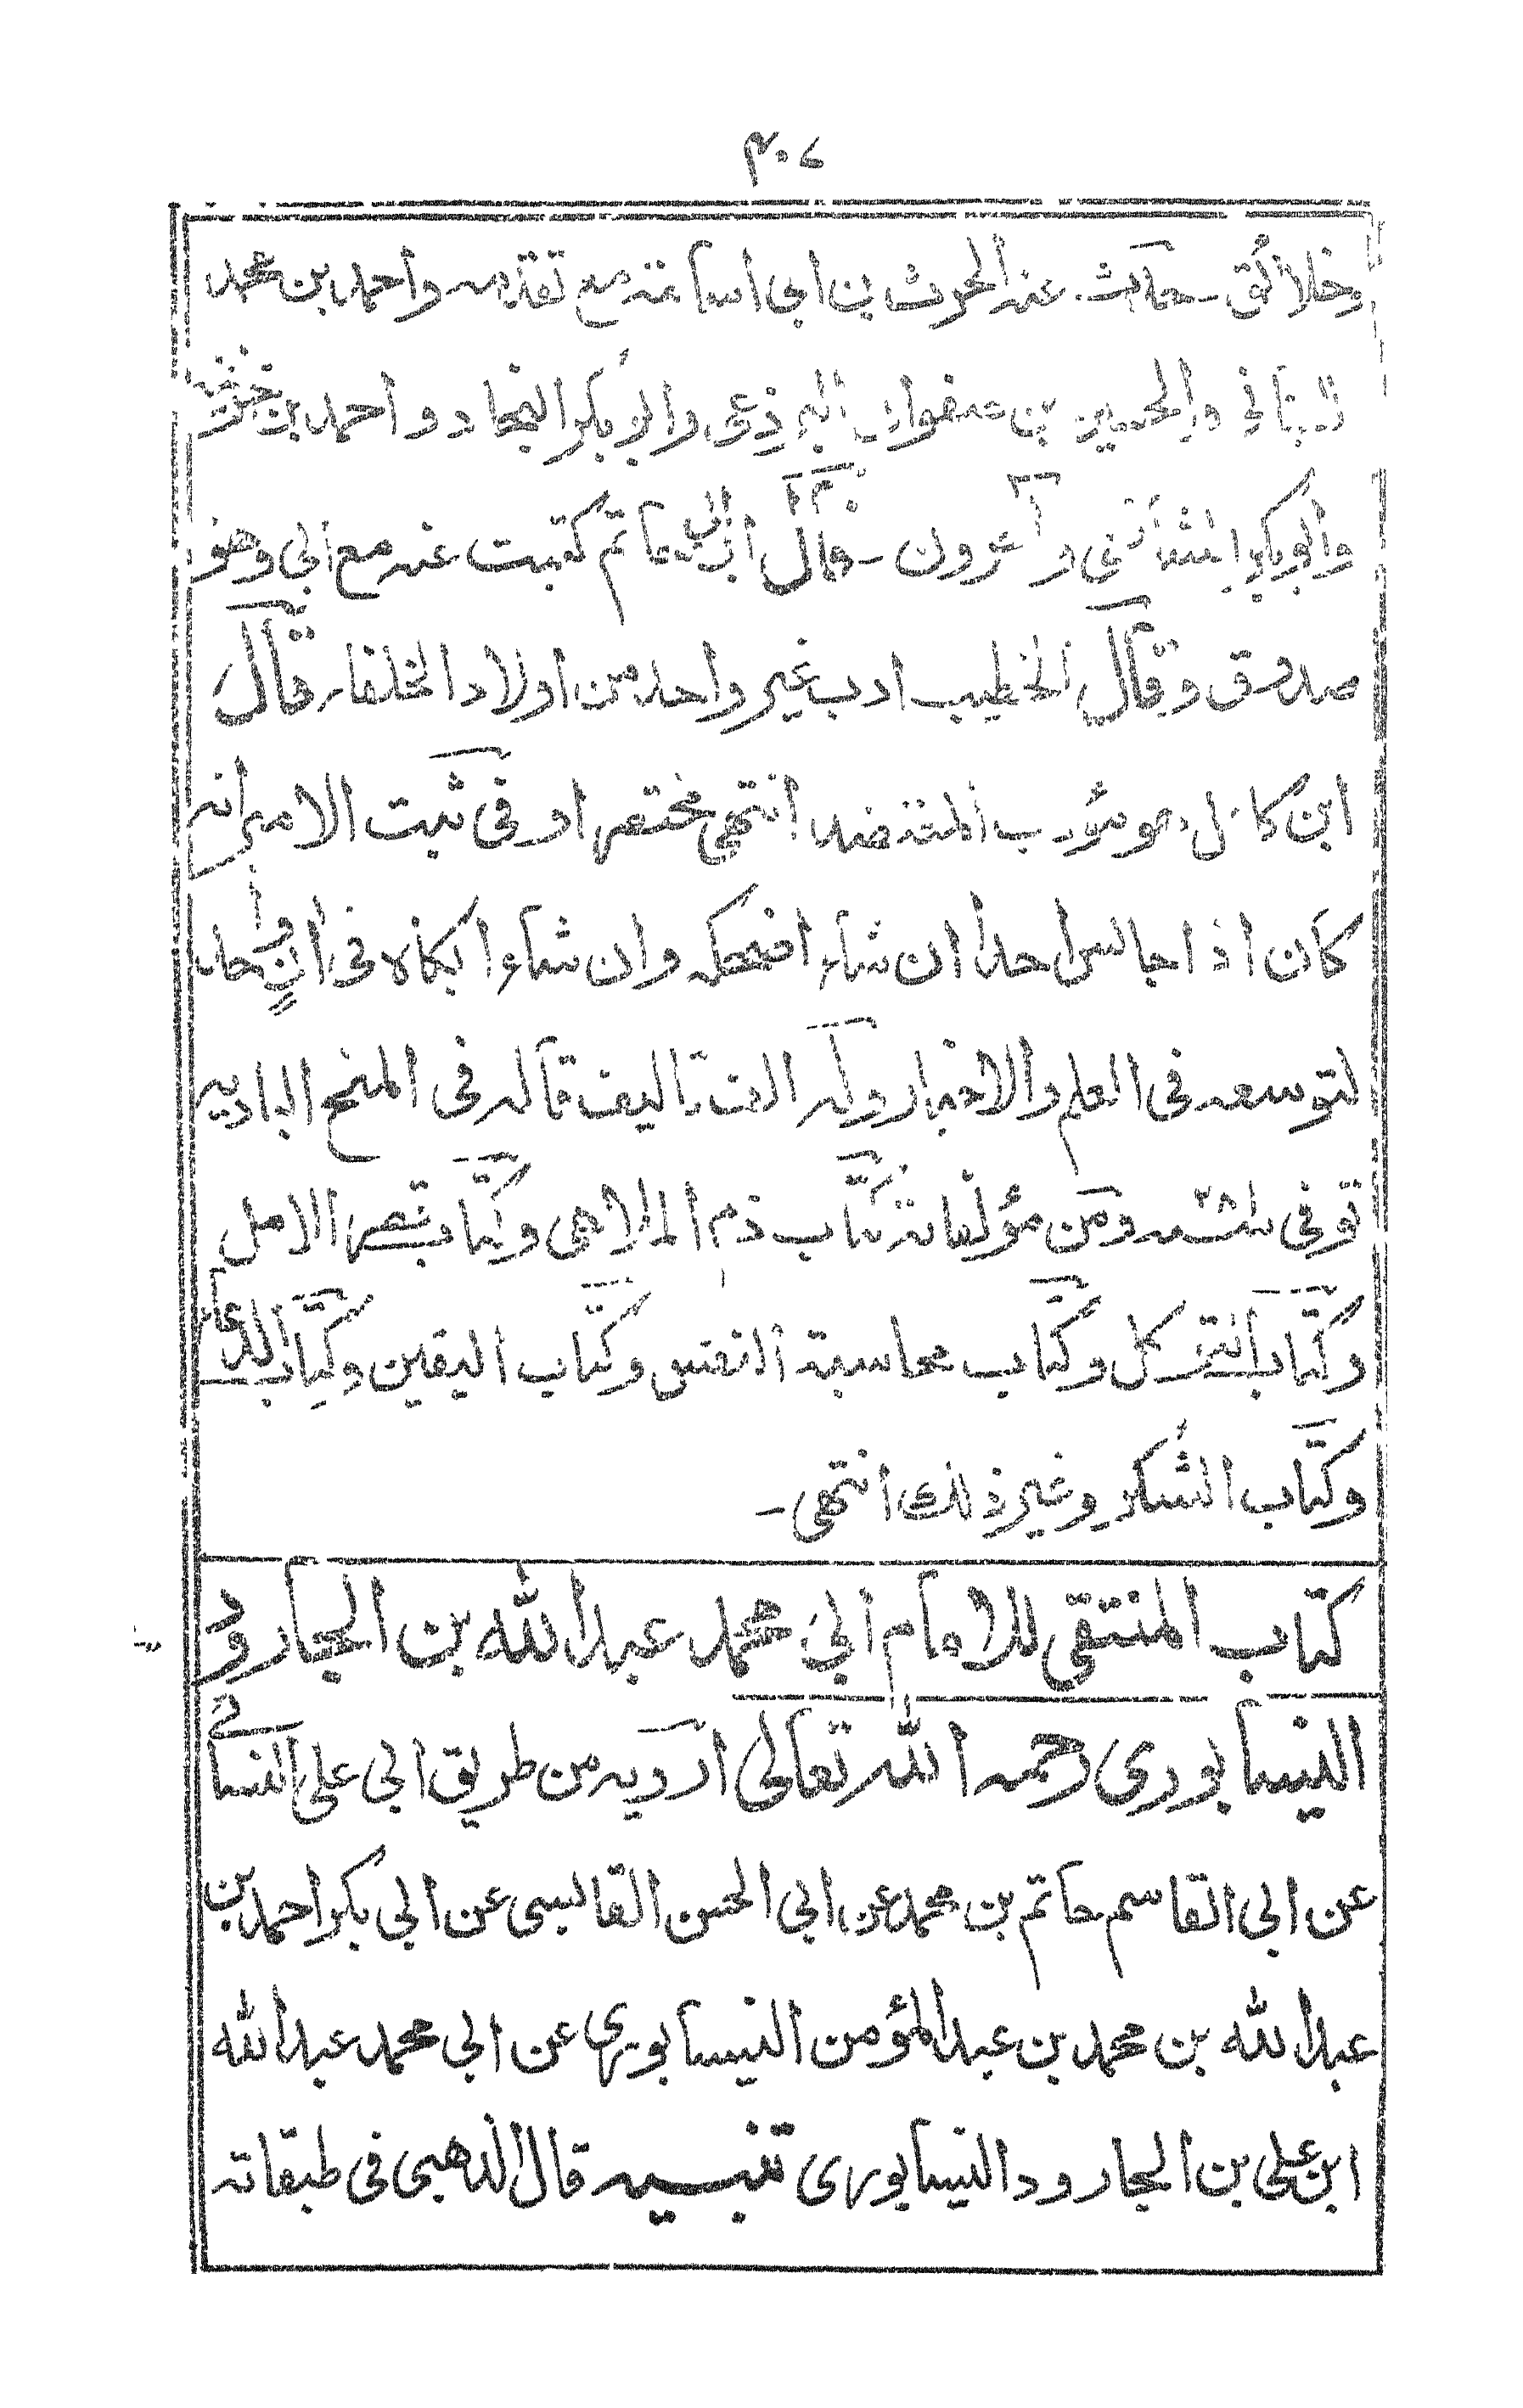 ٣٠٧
وخلائق حدث عنه الحرث بن ابى اسامة مع تقدمه واحمد بن محمد
والحسين بن صفوان البرذعى وابو بكر النجاد واحمد بن خزيمة
وابو بكر الشافعى وآخرون ـ قال ابن ابى حاتم كتبت عنه مع ابى وهو
صدوق وقال الخطيب ادب غير واحد من اولاد الخلفاء قال
ابن كامل هو مؤدب المعتضد انتهى مختصرا وفى ثبت الامير انه
كان اذا جالس احدا ان شاء اضحكه وان شاء ابكاه فى آن واحد
لتوسعه فى العلم والاخبار وله الف تاليف قاله فى المنح الباديه
توفى ومن مؤلفاته كتاب ذم الملاهى وكتاب قصر الامل
وكتاب التوكل وكتاب محاسبة النفس وكتاب اليقين وكتاب الدعاء
وكتاب الشكر وغير ذلك انتهى ـ
كتاب المنتقى للامام ابى محمد عبد الله بن الجارود
النيسابورى رحمه الله تعالى ارويه من طريق ابى على الغسانى
عن ابى القاسم حاتم بن محمد عن ابى الحسن القابسى عن ابى بكر احمد بن
عبد الله بن محمد بن عبد المؤمن النيسابورى عن ابى محمد عبد الله
ابن على بن الجارود النيسابورى تنبيه قال الذهبى فى طبقاته